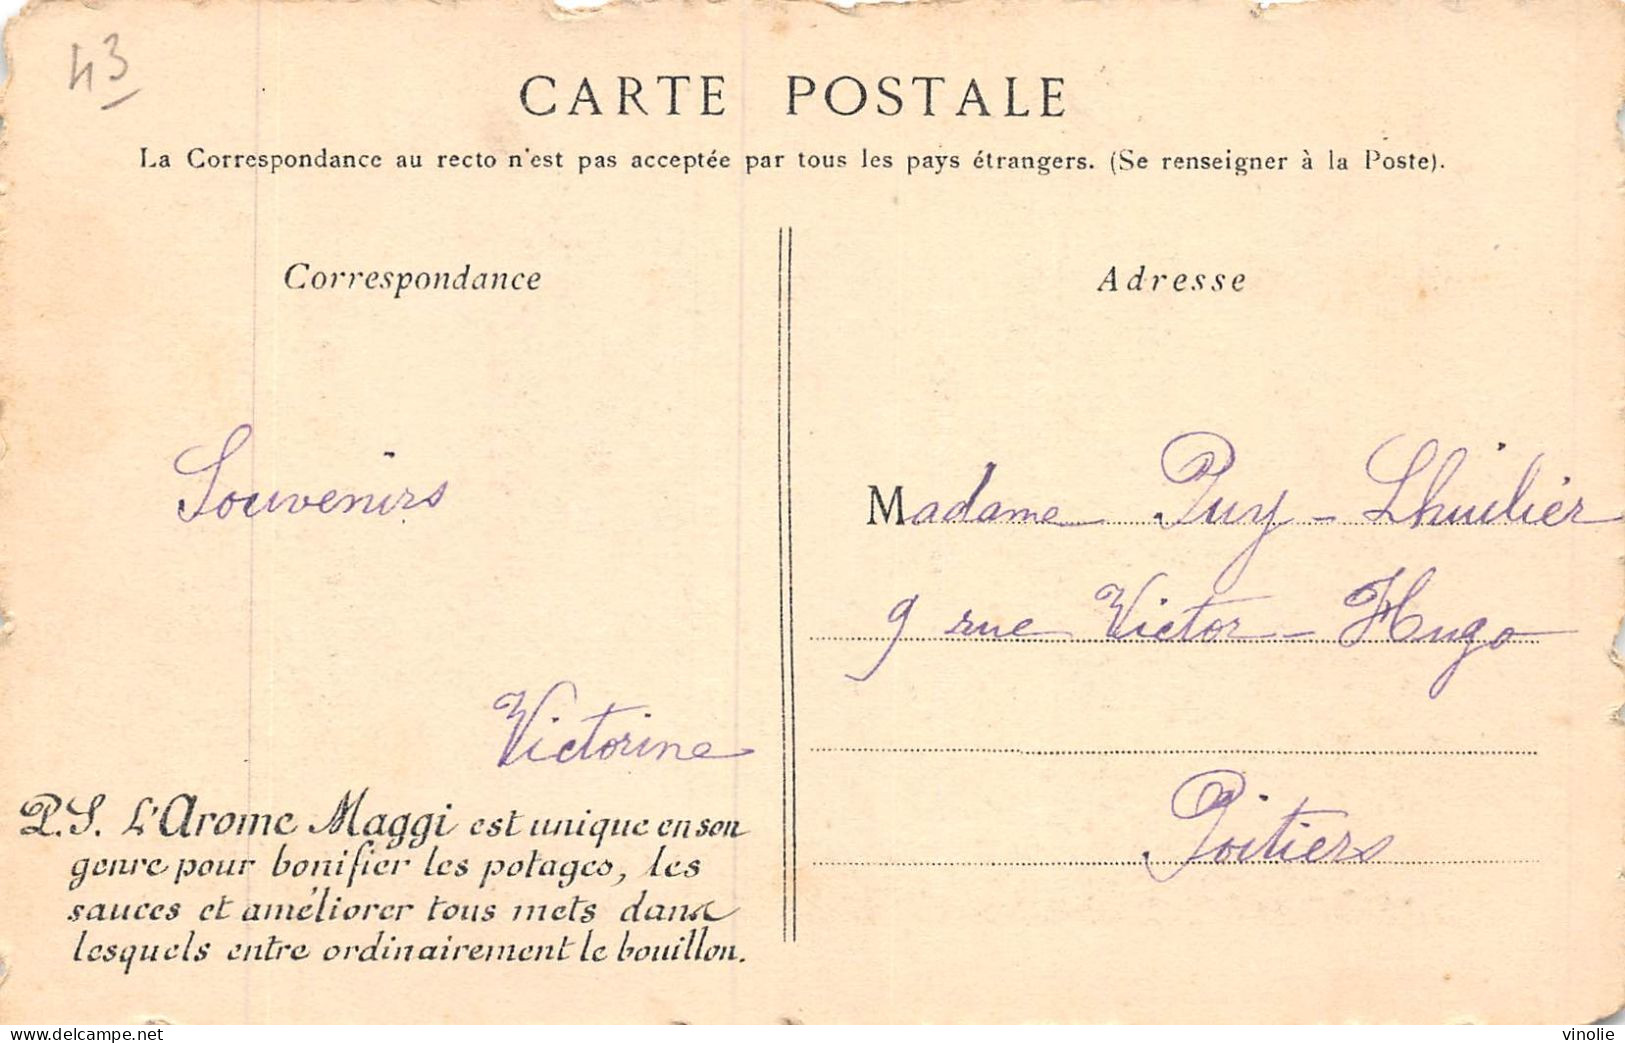 43
CARTE POSTALE
La Correspondance au recto n'est pas acceptée par tous les pays étrangers. (Se renseigner à la Poste).
Correspondance
Souvenirs
Victorine
P.S. L'Arome Maggi est unique en son
genre pour bonifier les potages, les
sauces et améliorer tous mets dans
lesquels entre ordinairement le bouillon.
Adresse
Madame Puy - Lhuilier
9 rue Victor - Hugo
Poitiers
www.delcampe.net
vinolie